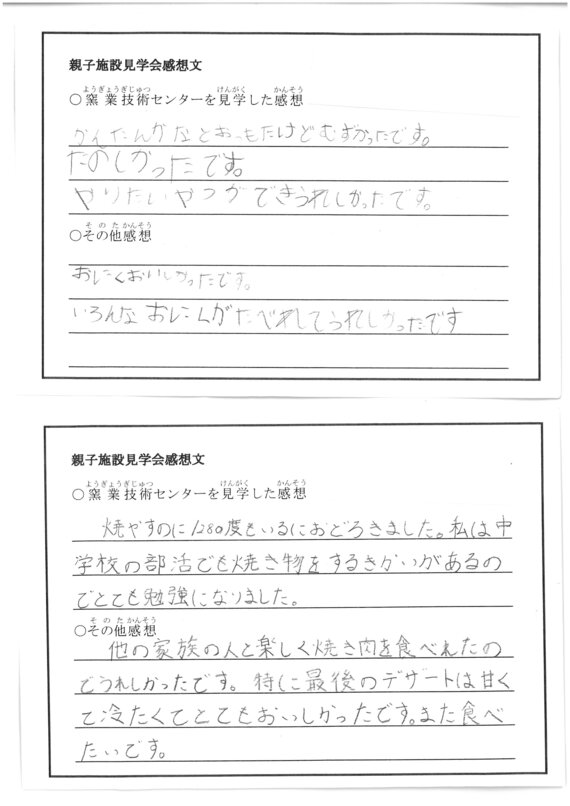 親子施設見学会感想文
ようぎょうぎじゅつ けんがく かんそう
○窯業技術センターを見学した感想
かんたんかなとおもたけどむずかったです。
たのしかったです。
やりたいやつができうれしかったです。
そのたかんそう
○その他感想
おにくおいしかったです。
いろんなおにくがたべれしてうれしかったです
親子施設見学会感想文
ようぎょうぎじゅつ けんがく かんそう
○窯業技術センターを見学した感想
焼やすのに1280度もいるにおどろきました。私は中
学校の部活でも焼き物をするきかいがあるの
でとても勉強になりました。
そのたかんそう
○その他感想
他の家族の人と楽しく焼き肉を食べれたの
でうれしかったです。特に最後のデザートは甘く
て冷たくてとてもおいしかったです。また食べ
たいです。